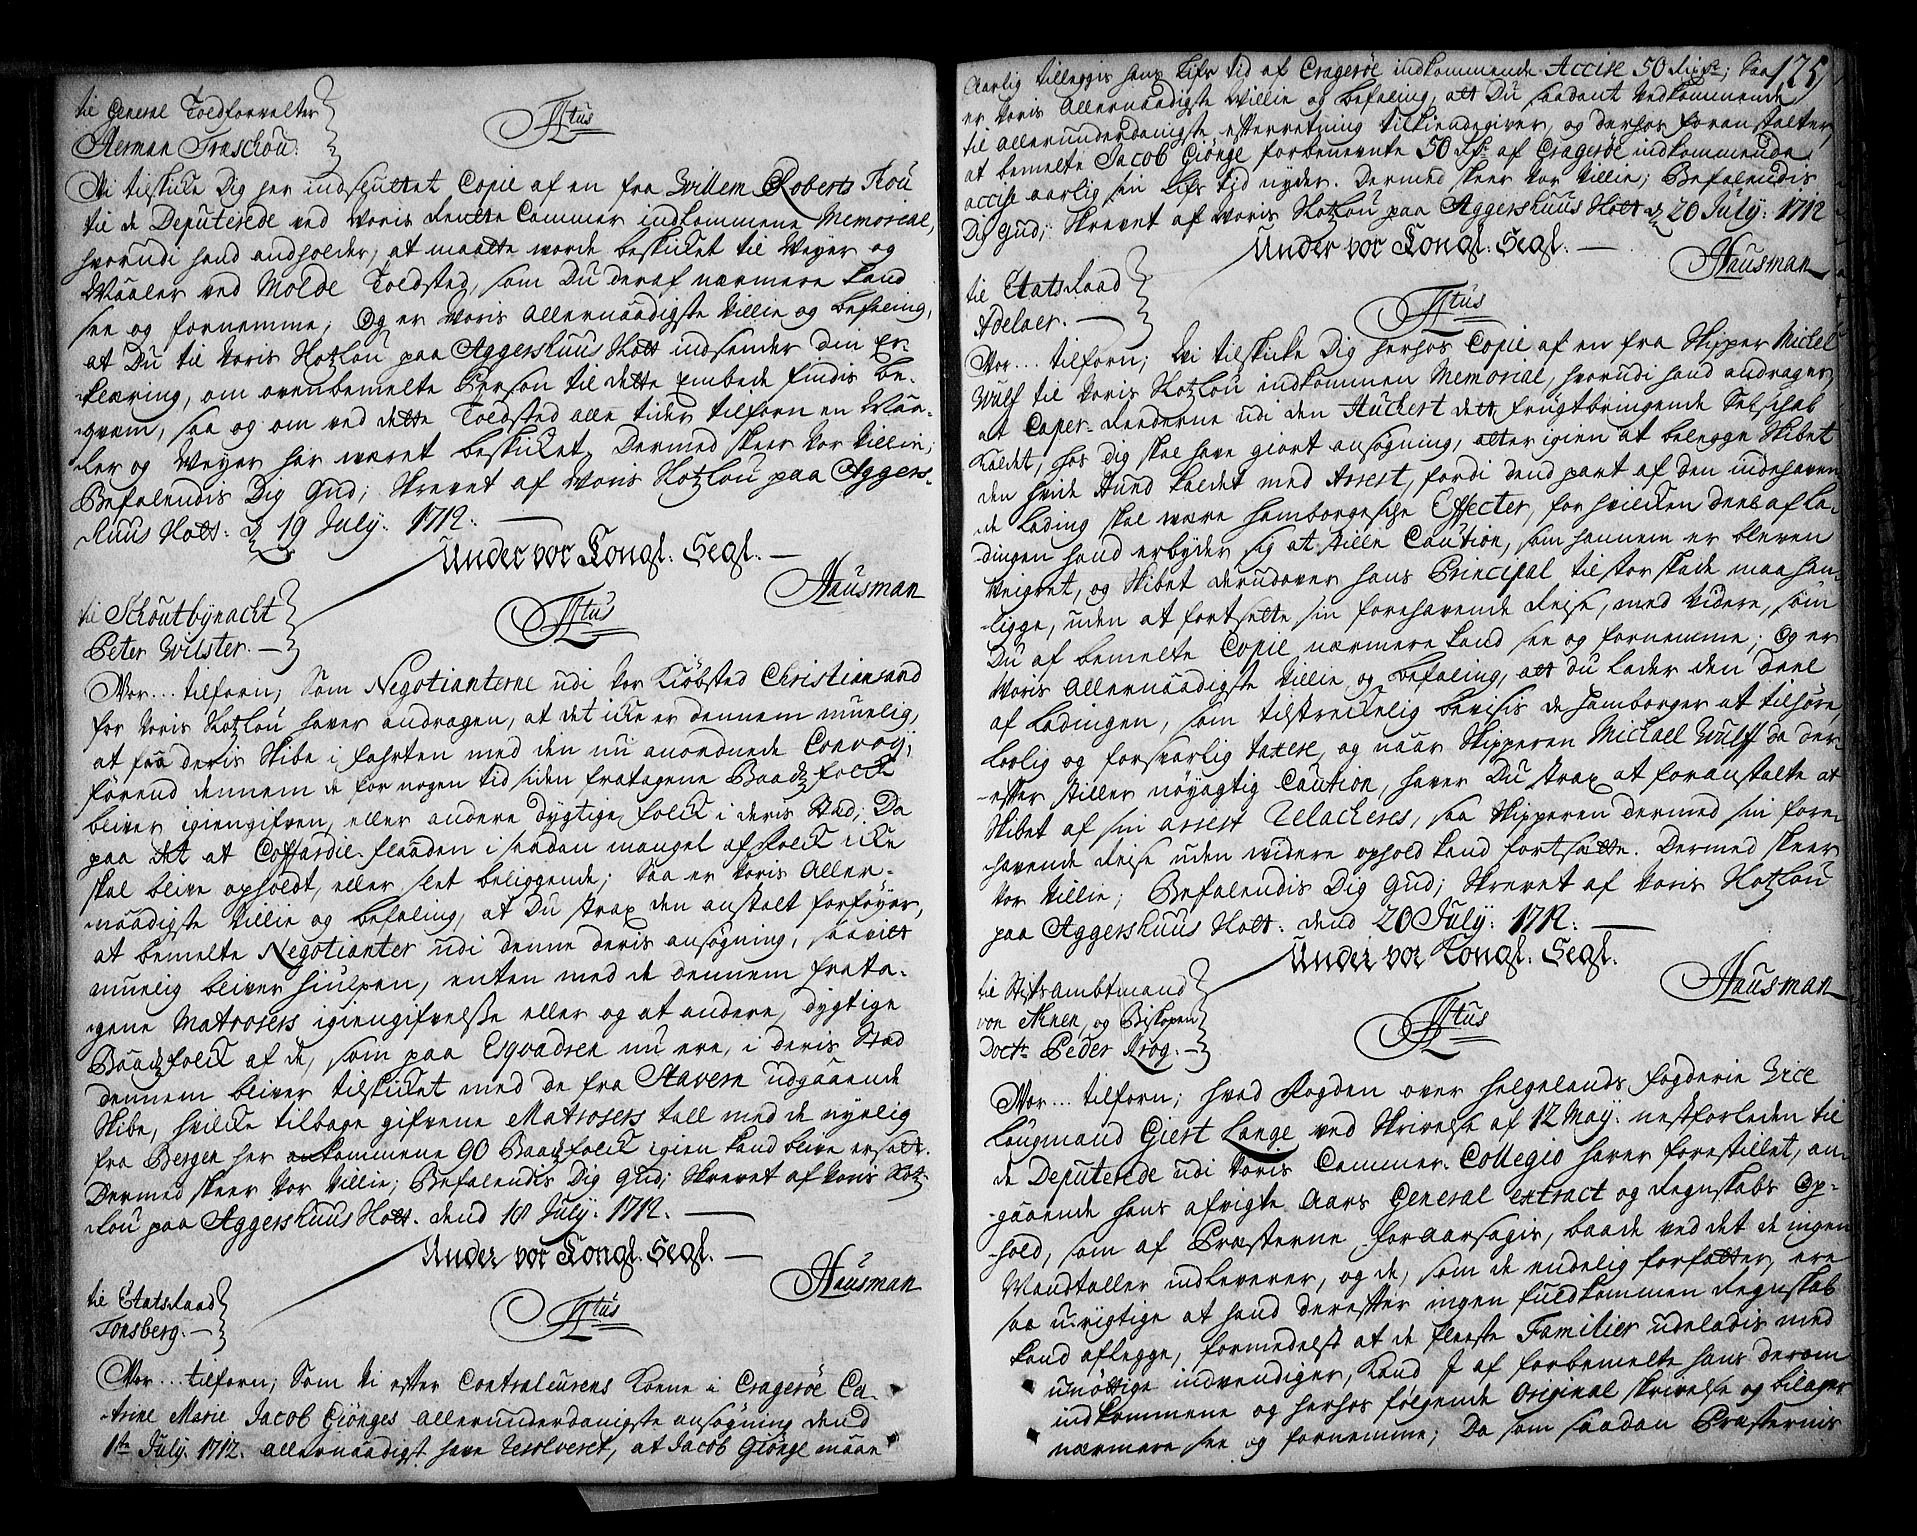 til General Toldforvalter
Herman Fraschou.
Ftus
Vi tilskicke Dig her indsluttet Copie af en fra Willem Roberts Kou
til de Deputerede ved Voris Rentte Cammer indkommene Memorial,
hvorudi hand andholder, at maatte worde beskicket til Veyer og
Maaler ved Molde Toldsted, som Du deraf nærmere kand
see og fornemme; Og er Voris Allernaadigste Villie og befaling,
at Du til Voris Slotzlou paa Aggershuus Slott indsender din Er-
klæring, om ovenbemelte Person til dette Embede findis be-
qvem, saa og om ved dette Toldsted alle tider tilforn en Maa-
ler og Veyer har været beskicket. Dermed skeer Vor Villie;
Befalendis Dig Gud; Skrevet af Voris Slotzlou paa Aggers-
huus Slott: d 19 July. 1712.
Under vor Kongl. Segl.
Hausman
til Schoutbynacht
Peter Wilster.
Ftus
Vor... tilforn; Som Negotianterne udi Vor Kiøbsted Christiansand
for Voris Slotzlou haver andragen, at det icke er dennem muelig,
at faa deris Skibe i fahrten med den nu anordnede Convoy,
førend dennem de for nogen tid siden fratagene Baadzfolck
bliver igiengifven, eller andere dygtige folck i deris Stad; Da
paa det at Coffardie-flaaden i saadan mangel af folck icke
skal blive opholdt, eller slet beliggende; Saa er Voris Aller-
naadigste Villie og befaling, at Du strax den anstalt forføyer,
at bemelte Negotianter udi denne deris ansøgning, saavitt
muelig bliver hiulpen, enten med de dennem frata-
gene Matrosers igiengifvelse eller og at andere, dygtige
Baadzfolck af de, som paa Esqvadren nu ere, i deris Stad
dennem bliver tilskicket med de fra Stavern udgaaende
Skibe, hvilcke tilbage gifvene Matrosers tall med de nyelig
fra Bergen her ankommene 90 Baadzfolck igien kand blive ersatt.
Dermed skeer Vor Villie; Befalendis Dig Gud; Skrevet af Voris Slotz-
lou paa Aggershuus Slott. dend 18 July. 1712.
Under vor Kongl. Segl.
Hausman
til Etatsraad
Tonsberg.
Ftus
Vor... tilforn; Som Vi efter Contraleurens Kone i Cragerøe Ca-
trine Marie Jacob Giønges allerunderdanigste ansøgning dend
1te July. 1712. allernaadigst have resolveret, at Jacob Giønge maae
175
Aarlig tilleggis hans Lifs tid af Cragerøe indkommende Accise 50 Rixdr; Saa
er Voris Allernaadigste Villie og befaling, att Du saadant Vedkommende
til allerunderdanigste efterretning tilkiendegiver, og derhos foranstalter,
at bemelte Jacob Giønge forbenevnte 50 Rdr. af Cragerøe indkommende
accise aarlig sin Lifs tid nyder. Dermed skeer Vor Villie; Befalendis
Dig Gud; Skrevet af Voris Slotzlou paa Aggershuus Slott d 20 July. 1712
Under vor Kongl. Segl.
Hausman
til Etatsraad
Adelaer.
Ftus
Vor... tilforn; Vi tilskicke Dig herhos Copie af en fra Skipper Michel
Wulf til Voris Slotzlou indkommen Memorial, hvorudi hand andrager,
at Caper-Reederne udi den Huckert dett frugtbringende Selschab
kaldet, hos dig skal have giort ansøgning, atter igien at belegge Skibet
den hvide Hund kaldet med Arrest, fordi dend part af den indehaven-
de Lading skal være hamborgesche Effecter, for hvilcken deel af La-
dingen hand erbyder sig at stille Caution, som hannem er bleven
veigret, og Skibet derudover hans Principal til stor skade maa hen-
ligge, uden at fortsette sin forehavende Reise, med Videre, som
Du af bemelte Copie nærmere kand see og fornemme; Og er
Voris Allernaadigste Villie og befaling, att du lader den deel
af Ladingen, som tilstreckelig bevises de hamborger at tilhøre,
lovlig og forsvarlig taxere, og naar Skipperen Michael Wulff da der-
efter stiller nøyagtig Caution, haver Du strax at foranstalte at
Skibet af sin arrest relacheres, saa Skipperen dermed sin fore-
havende Reise uden videre ophold kand fortsætte. Dermed skeer
Vor Villie; Befalendis Dig Gud; Skrevet af Voris Slotzlou
paa Aggershuus Slott. dend 20 July. 1712.
Under vor Kongl. Segl.
Hausman
til Stiftsambtmand
von Ahnen, og Biskopen
Doctr. Peder Krog.
Ftus
Vor... tilforn; hvad fogden over Helgelands fogderie Vice
Laugmand Giert Lange ved Skrivelse af 12 May. nestforleden til
de Deputerede udi Voris Cammer-Collegio haver forestillet, an-
gaaende hans afvigte Aars General extract og Regnskabs Op-
hold, som af Præsterne foraarsagis, baade ved det de ingen
Mandtaller indleverer, og de, som de endelig forfatter, ere
saa urigtige at hand derefter ingen fuldkommen Regnskab
kand aflegge, formedelst at de fleeste Familier udeladis med
unøttige indvendiger, kand I af forbemelte hans derom
indkommene og herhos følgende Original skrivelse og bilager
nærmere see og fornemme; Da som saadan Præsternis